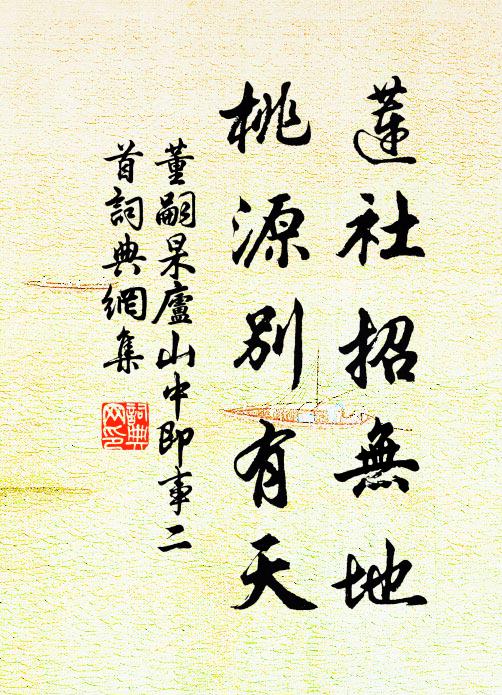 蓮社招無地
桃源別有天
董嗣杲廬山中即事二
首詞典網集
詞典
网印